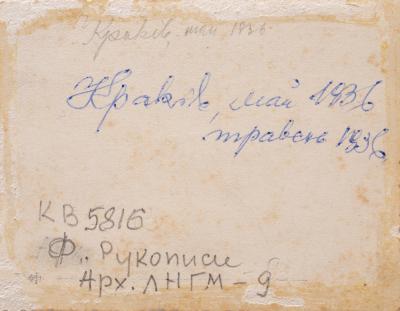 Краків, май 1936
Краків, май 1936
травень 1936
КВ 5816
Ф. „Рукописи
Арх. ЛНГМ – 9